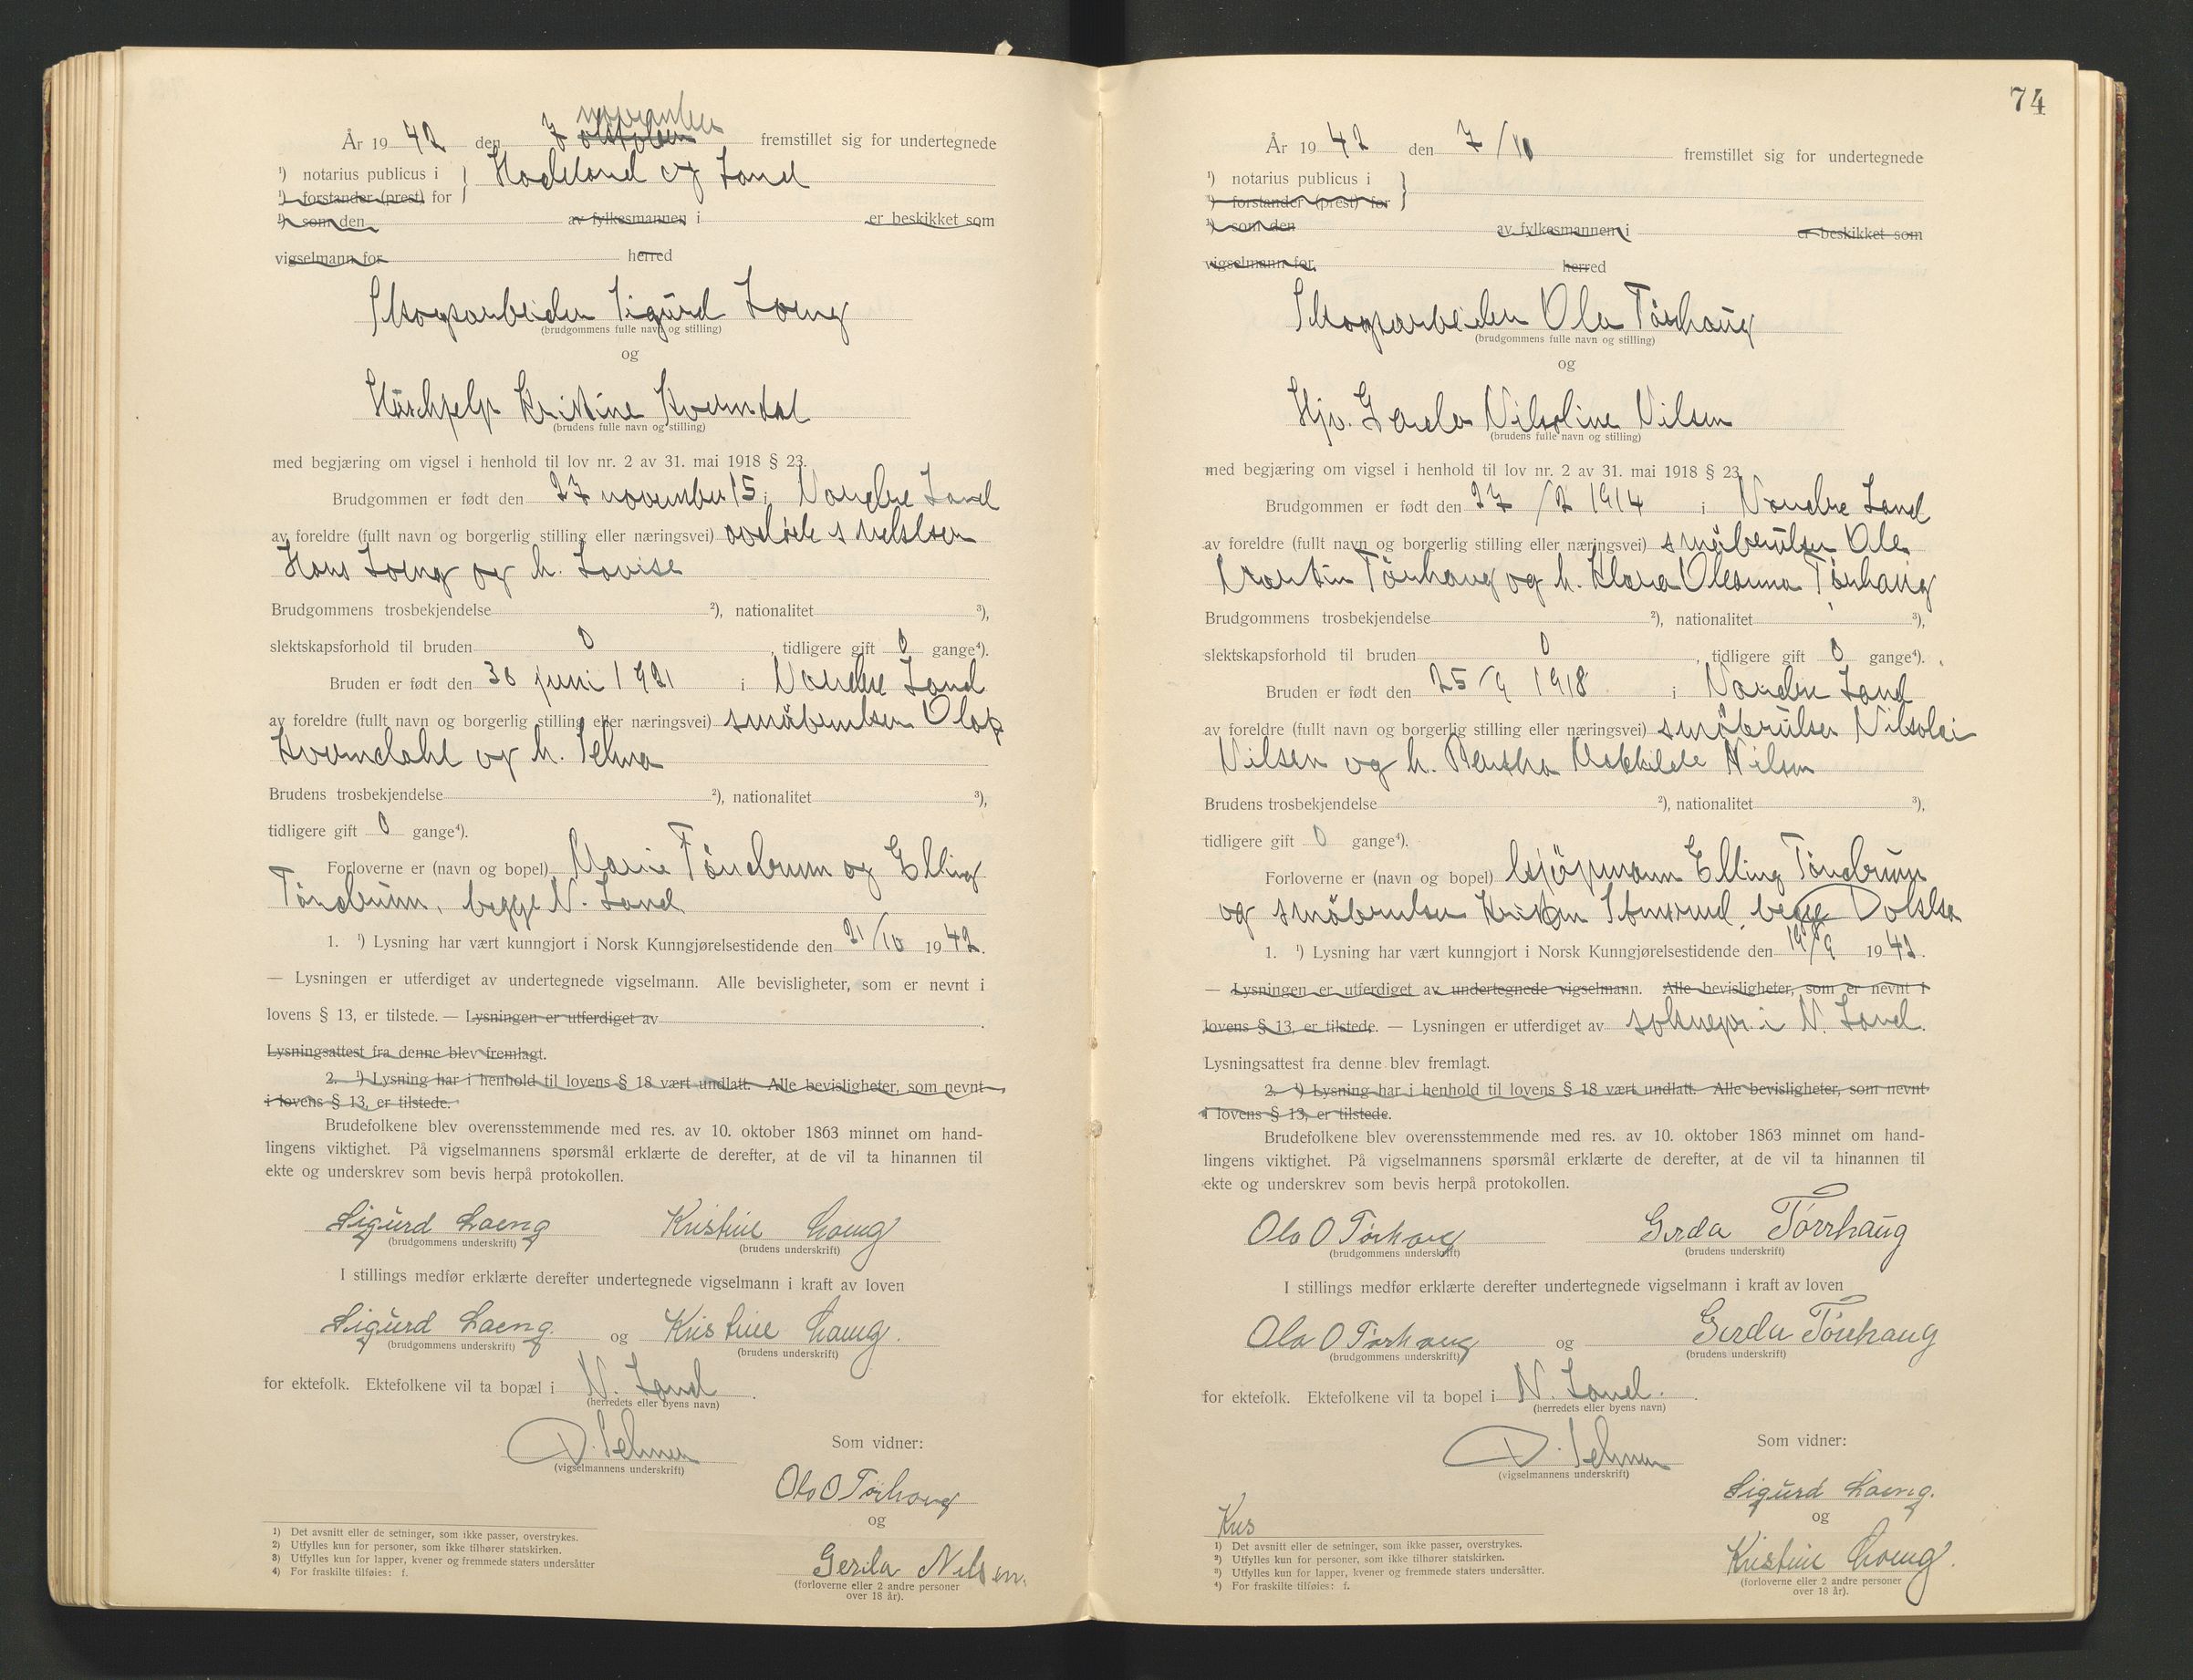 År 19 42 den 7 november fremstillet sig for undertegnede
¹) notarius publicus i } Hadeland og Land
¹) forstander (prest) for
¹) som den av fylkesmannen i er beskikket som
vigselmann for herred
Skogsarbeider Sigurd Loeng
(brudgommens fulle navn og stilling)
og
Hushjelp Kristine Kverndal
(brudens fulle navn og stilling)
med begjæring om vigsel i henhold til lov nr. 2 av 31. mai 1918 § 23.
Brudgommen er født den 27 november 15 i Nordre Land
av foreldre (fullt navn og borgerlig stilling eller næringsvei)
Hans Loeng og h. Lovise
Brudgommens trosbekjendelse ²), nationalitet ³),
slektskapsforhold til bruden 0, tidligere gift 0 gange⁴).
Bruden er født den 30 juni 1921 i Nordre Land
av foreldre (fullt navn og borgerlig stilling eller næringsvei) småbruker Olaf
Kverndahl og h. Selma
Brudens trosbekjendelse ²), nationalitet ³),
tidligere gift 0 gange⁴).
Forloverne er (navn og bopel) Marie Tøndbrum og Elling
Tøndbrum, begge N. Land
1. ¹) Lysning har vært kunngjort i Norsk Kunngjørelsestidende den 21/10 1942.
— Lysningen er utferdiget av undertegnede vigselmann. Alle bevisligheter, som er nevnt i
lovens § 13, er tilstede. — Lysningen er utferdiget av .
Lysningsattest fra denne blev fremlagt.
2. ¹) Lysning har i henhold til lovens § 18 vært undlatt. Alle bevisligheter, som nevnt
i lovens § 13, er tilstede.
Brudefolkene blev overensstemmende med res. av 10. oktober 1863 minnet om hand-
lingens viktighet. På vigselmannens spørsmål erklærte de derefter, at de vil ta hinannen til
ekte og underskrev som bevis herpå protokollen.
Sigurd Loeng Kristine Loeng
(brudgommens underskrift) (brudens underskrift)
I stillings medfør erklærte derefter undertegnede vigselmann i kraft av loven
Sigurd Loeng. og Kristine Loeng.
(brudgommens underskrift) (brudens underskrift)
for ektefolk. Ektefolkene vil ta bopæl i N. Land .
(herredets eller byens navn)
D. Selmer
(vigselmannens underskrift)
Som vidner:
Ola O Tørhaug
og
Gerda Nilsen.
(forloverne eller 2 andre personer
over 18 år).
1) Det avsnitt eller de setninger, som ikke passer, overstrykes.
2) Utfylles kun for personer, som ikke tilhører statskirken.
3) Utfylles kun for lapper, kvener og fremmede staters undersåtter
4) For fraskilte tilføies: f.
74
År 19 42 den 7/11 fremstillet sig for undertegnede
¹) notarius publicus i }
¹) forstander (prest) for
¹) som den av fylkesmannen i er beskikket som
vigselmann for herred
Skogsarbeider Ola Tørhaug
(brudgommens fulle navn og stilling)
og
Hjv. Gerda Nilsoline Nilsen
(brudens fulle navn og stilling)
med begjæring om vigsel i henhold til lov nr. 2 av 31. mai 1918 § 23.
Brudgommen er født den 27/2 1914 i Nordre Land
av foreldre (fullt navn og borgerlig stilling eller næringsvei) småbruker Ole
Martin Tørhaug og h. Klara Oleanna Tørhaug
Brudgommens trosbekjendelse ²), nationalitet ³),
slektskapsforhold til bruden 0, tidligere gift 0 gange⁴).
Bruden er født den 25/9 1918 i Nordre Land
av foreldre (fullt navn og borgerlig stilling eller næringsvei) småbruker Nikolai
Nilsen og h. Bertha Mathilde Nilsen
Brudens trosbekjendelse ²), nationalitet ³),
tidligere gift 0 gange⁴).
Forloverne er (navn og bopel) kjøpmann Elling Tøndbrum
og småbruker Kristen begge Dokka
1. ¹) Lysning har vært kunngjort i Norsk Kunngjørelsestidende den 19/9 1942.
— Lysningen er utferdiget av undertegnede vigselmann. Alle bevisligheter, som er nevnt i
lovens § 13, er tilstede. — Lysningen er utferdiget av soknepr. i N. Land.
Lysningsattest fra denne blev fremlagt.
2. ¹) Lysning har i henhold til lovens § 18 vært undlatt. Alle bevisligheter, som nevnt
i lovens § 13, er tilstede.
Brudefolkene blev overensstemmende med res. av 10. oktober 1863 minnet om hand-
lingens viktighet. På vigselmannens spørsmål erklærte de derefter, at de vil ta hinannen til
ekte og underskrev som bevis herpå protokollen.
Ola O Tørhaug Gerda Tørrhaug
(brudgommens underskrift) (brudens underskrift)
I stillings medfør erklærte derefter undertegnede vigselmann i kraft av loven
Ola O Tørhaug og Gerda Tørrhaug
(brudgommens underskrift) (brudens underskrift)
for ektefolk. Ektefolkene vil ta bopel i N. Land. .
(herredets eller byens navn)
D. Selmer
(vigselmannens underskrift)
Som vidner:
Sigurd Loeng.
og
Kristine Loeng.
(forloverne eller 2 andre personer
over 18 år).
Kris
1) Det avsnitt eller de setninger, som ikke passer, overstrykes.
²) Utfylles kun for personer, som ikke tilhører statskirken.
³) Utfylles kun for lapper, kvener og fremmede staters undersåtter.
⁴) For fraskilte tilføies: f.